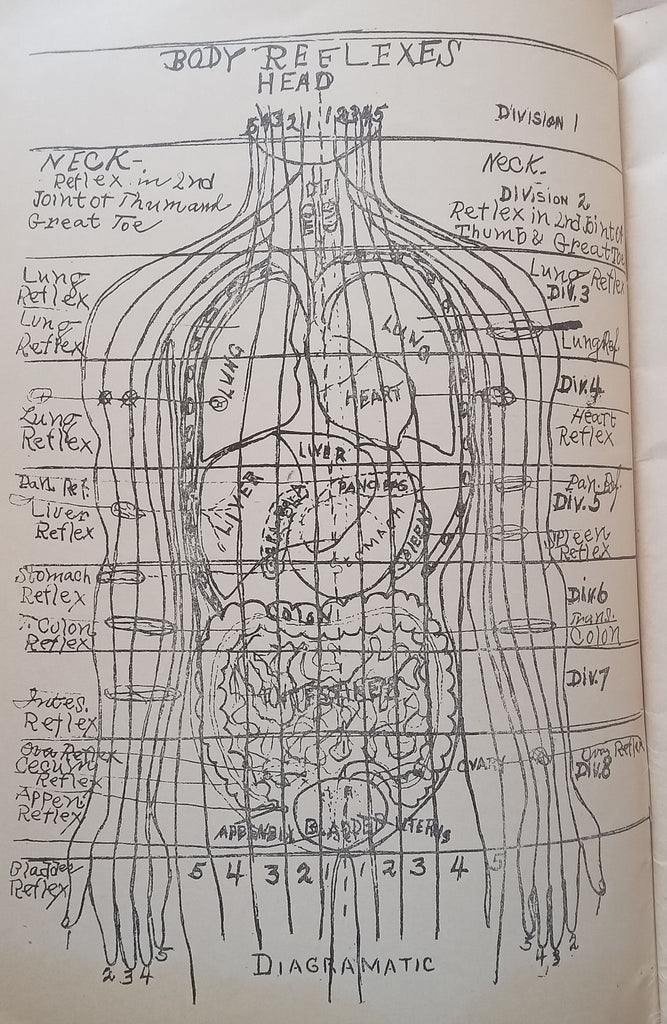 BODY REFLEXES
HEAD
5 4 3 2 1 1 2 3 4 5
DIVISION 1
NECK-
Reflex in 2nd
Joint of Thum and
Great Toe
NECK-
DIVISION 2
Reflex in 2nd Joint of
Thumb & Great Toe
Lung
Reflex
Lung Reflex
Div. 3
Lung
Reflex
LUNG
LUNG
Lung Ref.
Div. 4
HEART
Lung
Reflex
Heart
Reflex
LIVER
Pan. Ref.
LIVER
PANCREAS
Div. 5
Liver
Reflex
STOMACH
SPLEEN
Spleen
Reflex
Stomach
Reflex
Div. 6
COLON
T. Colon
Reflex
Trans.
Colon
Div. 7
INTESTINES
Intes.
Reflex
Ova Reflex
OVARY
Ova Reflex
Div. 8
Cecum
Reflex
Appen.
Reflex
BLADDER UTERUS
Bladder
Reflex
5 4 3 2 1 1 2 3 4 5
1
2 3 4 5
5 4 3 2
DIAGRAMATIC